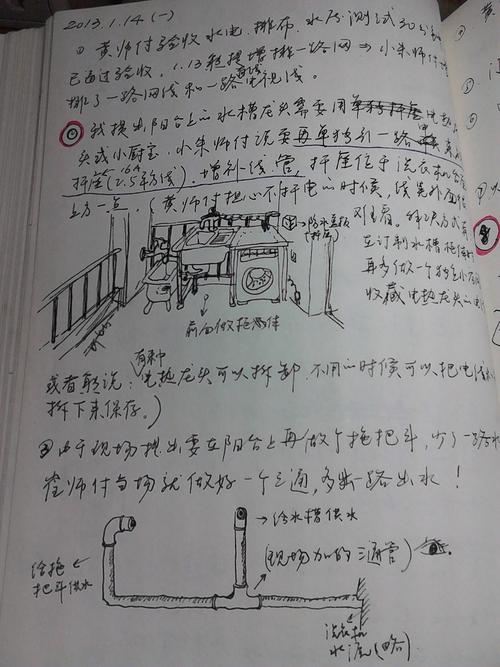 2013.1.14(一)
① 黄师付验收水电、排布、水压测试30分
已通过验收。1.13我提增排一路网⇒小朱师付增
排了一路网线和一路电视线。
② 我提出阳台上的水槽龙头需要用 电热
头或小厨宝,小朱师付说要再单独引一路
插座(2.5平方线)、增补线、管,插座位于洗衣机
上方一点。(黄师付担心不插电的时候,线
难看。解决方式
→防水盖板
(插座)
立订制水槽柜
再多做一个
收藏电热龙头的电
前面做拖把
有种
或者解说:电热龙头可以拆卸,不用的时候可以把电
拆下来保存。)
③ 由于现场提出要在阳台上再做个拖把斗,少了一路水
师付当场就做好一个三通,多出一路出水!
→给水槽供水
给拖←
把斗供水
(现场加的三通管)
洗衣机
水 (略)